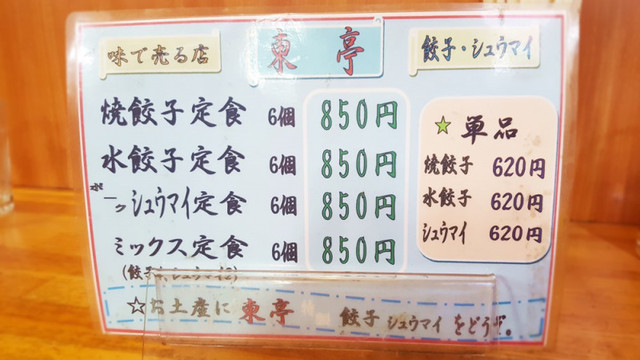 味で売る店 東亭 餃子・シュウマイ
焼餃子定食 6個 850円
水餃子定食 6個 850円
シュウマイ定食 6個 850円
ミックス定食 6個 850円
☆単品
焼餃子 620円
水餃子 620円
シュウマイ 620円
☆お土産に 東亭 餃子 シュウマイ をどうぞ。